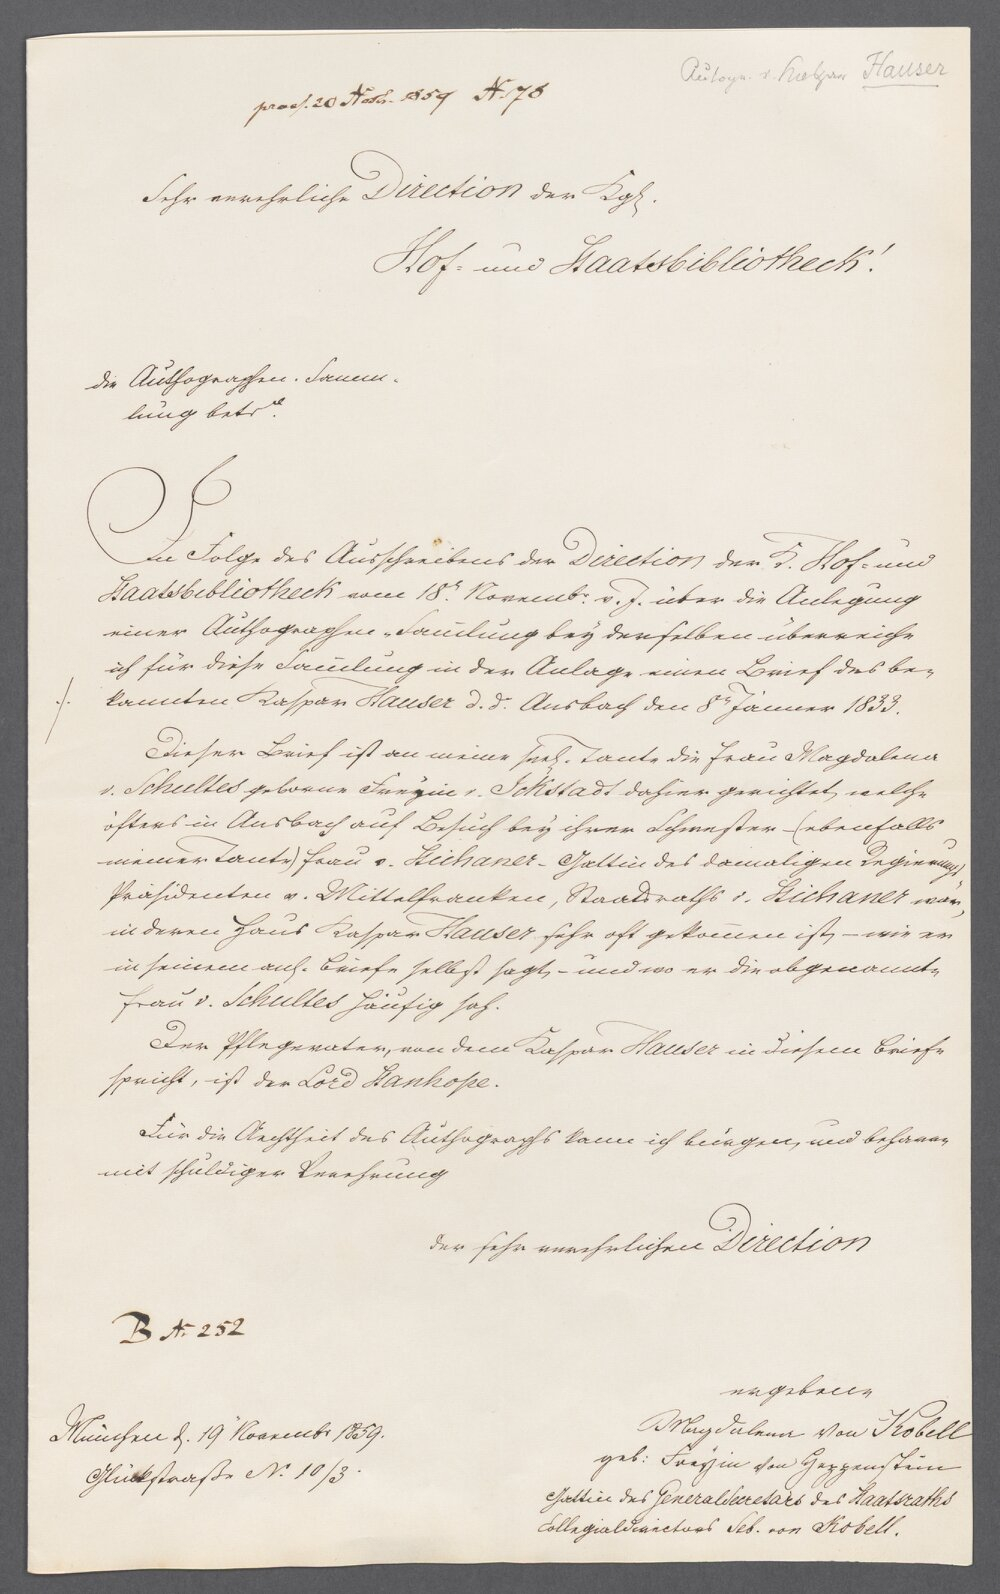 Autogr. v. Kaspar Hauser
praes. 20 Nov. 1859 N. 78
Sehr verehrliche Direction der Kgl.
Hof- und Staatsbibliotheck!
die Authographen-Samm-
lung betr.
In Folge des Ausschreibens der Direction der K. Hof- und
Staatsbibliotheck vom 18n. Novembr. v. J. über die Anlegung
einer Authographen-Sam̄lung bey derselben überreiche
ich für diese Sam̄lung in der Anlage einen Brief des be-
./. kannten Kaspar Hauser d. d. Ansbach den 8n Jänner 1833.
Dieser Brief ist an meine seel. Tante die Frau Magdalena
v. Schultes geborne Freyin v. Ickstadt dahier gerichtet, welche
öfters in Ansbach auf Besuch bey ihrer Schwester - (ebenfalls
meiner Tante) Frau v. Stichaner - Gattin des damaligen Regierungs
Präsidenten v. Mittelfranken, Staatsraths v. Stichaner war,
in deren Haus Kaspar Hauser sehr oft gekom̄en ist, - wie er
in seinem anl. Briefe selbst sagt, - und wo er die obgenannte
Frau v. Schultes häufig sah.
Der Pflegevater, von dem Kaspar Hauser in diesem Briefe
spricht, ist der Lord Stanhope.
Für die Aechtheit des Authographs kann ich bürgen, und beharre
mit schuldiger Verehrung
der sehr verehrlichen Direction
B N. 252
ergebene
München d. 19 Novembr 1859.
Magdalena von Kobell
Glückstraße No. 10/3.
geb: Freyin von Heppenstein
Gattin des Generalsecretärs des Staatsraths
Collegialdirectors Seb. von Kobell.